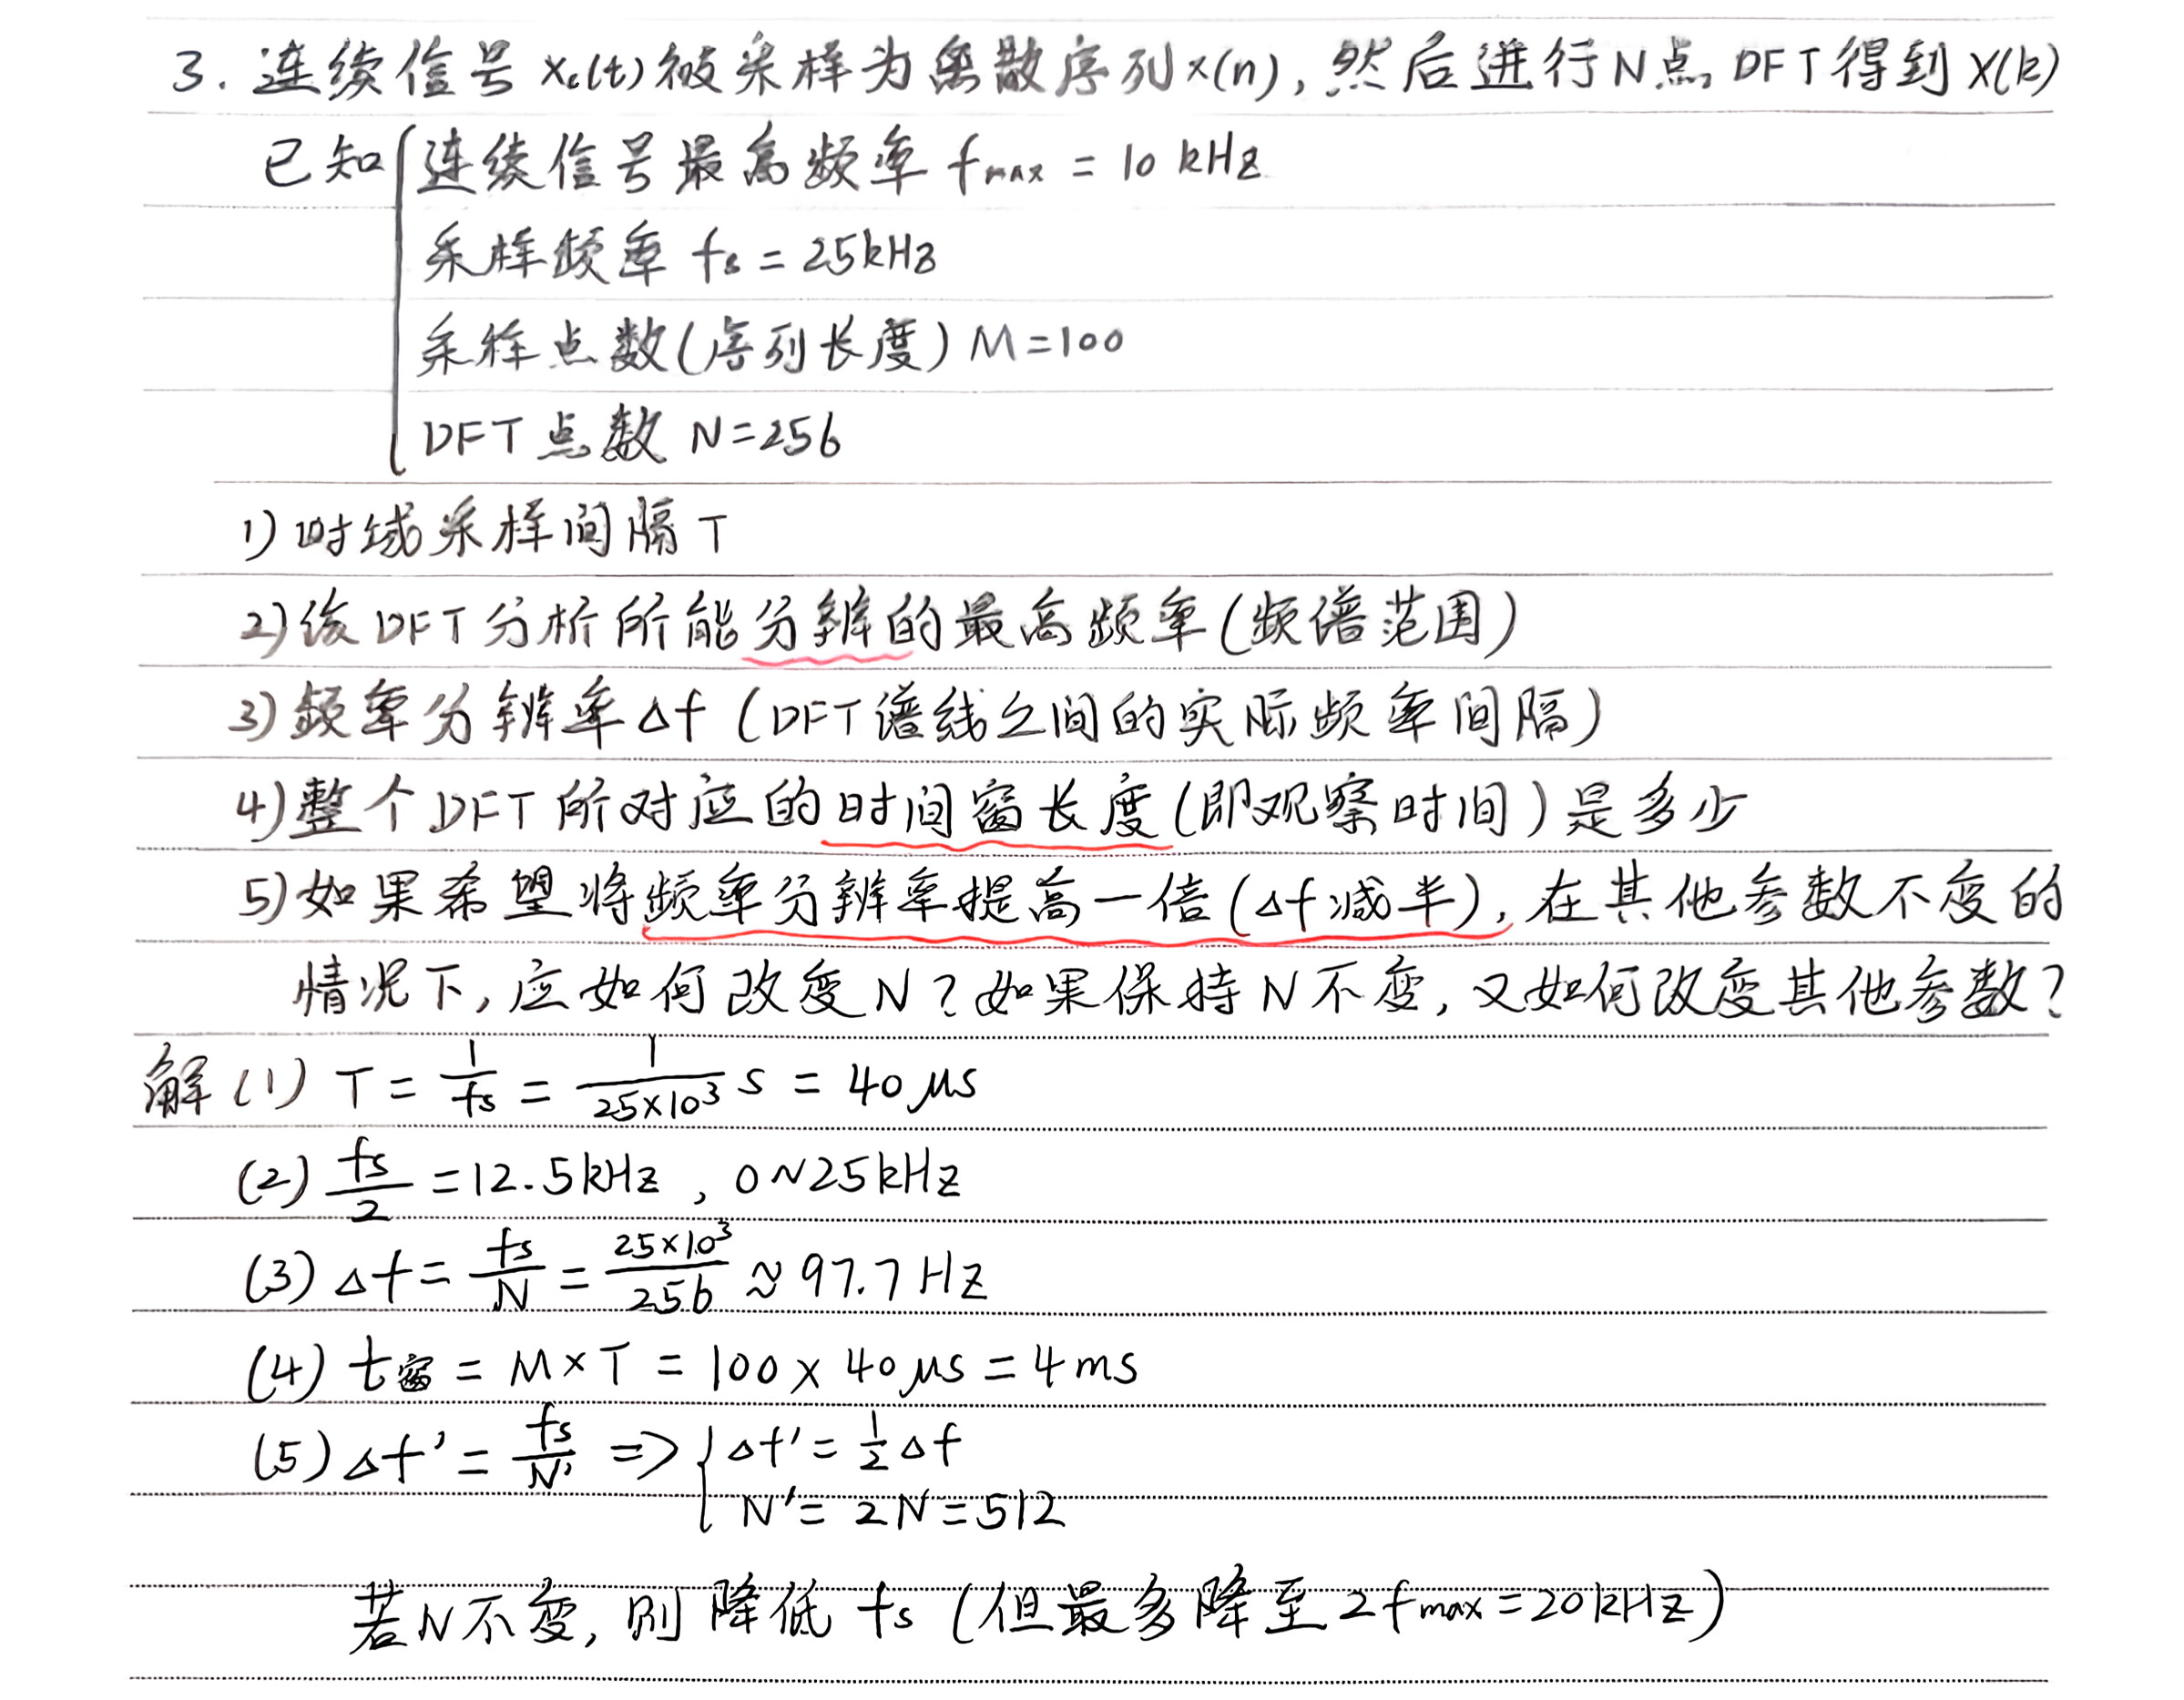 3. 连续信号 xc(t) 被采样为离散序列 x(n), 然后进行N点 DFT 得到 X(k)
已知 { 连续信号最高频率 fmax = 10 kHz
采样频率 fs = 25kHz
采样点数(序列长度) M=100
DFT 点数 N=256
1) 时域采样间隔 T
2) 该 DFT 分析所能分辨的最高频率(频谱范围)
3) 频率分辨率 Δf (DFT谱线之间的实际频率间隔)
4) 整个 DFT 所对应的时间窗长度(即观察时间)是多少
5) 如果希望将频率分辨率提高一倍(Δf减半), 在其他参数不变的
情况下, 应如何改变 N? 如果保持 N 不变, 又如何改变其他参数?
解 (1) T = 1/fs = 1/(25×10³) s = 40 μs
(2) fs/2 = 12.5kHz , 0~25kHz
(3) Δf = fs/N = (25×10³)/256 ≈ 97.7 Hz
(4) t窗 = M×T = 100 × 40 μs = 4 ms
(5) Δf' = fs/N' => { Δf' = 1/2 Δf
N' = 2N = 512
若N不变, 则降低 fs (但最多降至 2fmax = 20kHz)